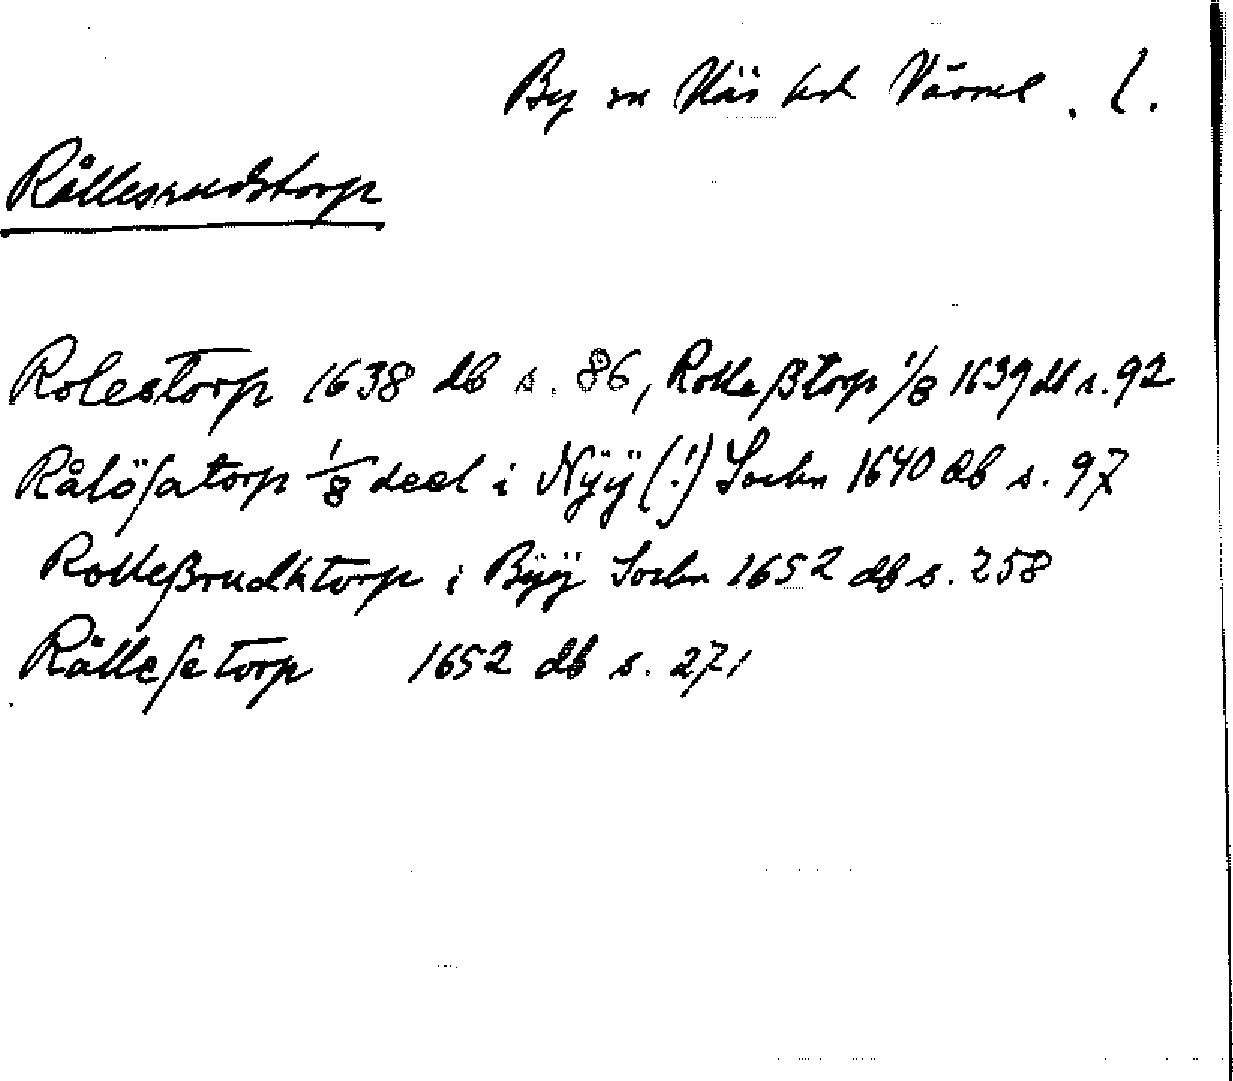 By sn Näs hd Värml. l.
Rållesrudstorp
Rolestorp 1638 db s. 86, Rolleßtorp 1/8 1639 db s. 92
Rålöſatorp 1/8 deel i Nÿÿ (!) Sochn 1640 db s. 97
Rolleßrudhtorp i Bÿÿ Sochn 1652 db s. 258
Rålleſetorp 1652 db s. 271